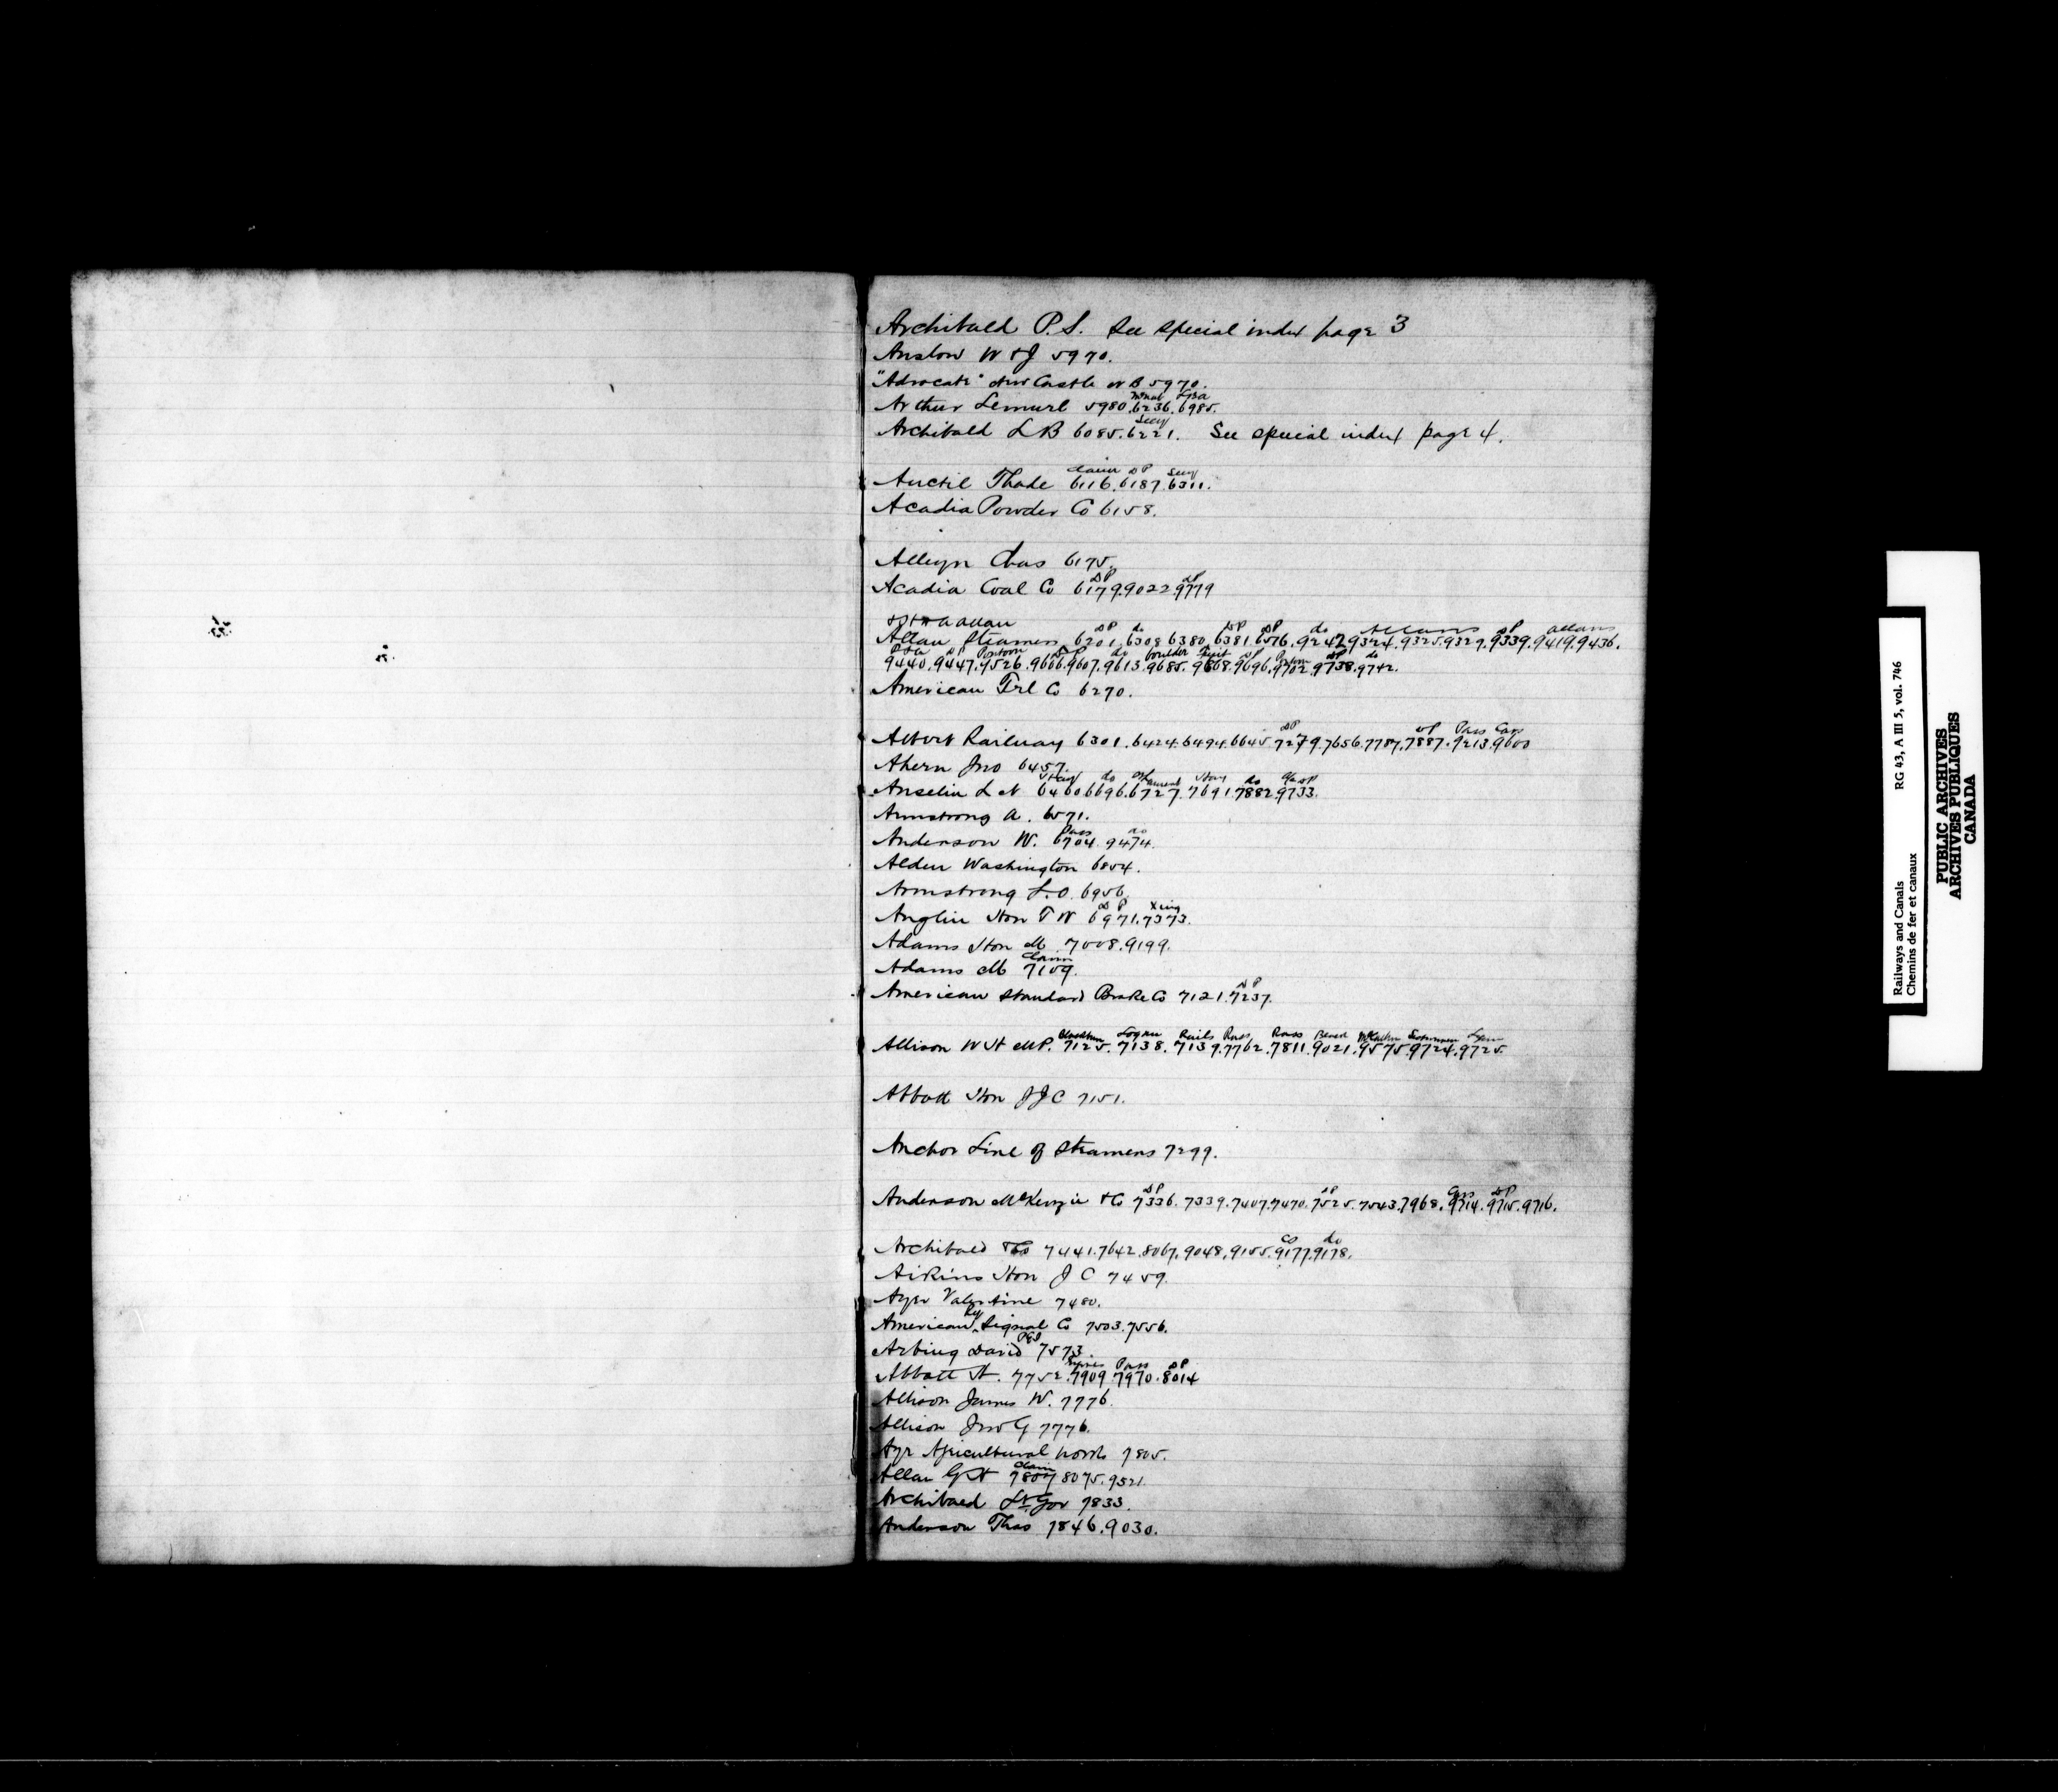 Archibald P.S. See special index page 3
Anslow W & J 5970.
"Advocate" New Castle N B 5970.
Arthur Lemuel 5980.6236.6985.
Archibald L B 6085.6221. See special index page 4.
Claim D P Secy
Auctil Thade 6116.6187.6311.
Acadia Powder Co 6158.
Alleyn Chas 6175.
D P D P
Acadia Coal Co 6179.9022.9779
Allan Steamers 6201.6308 6380.6381.6576.9242.9324.9325.9329.9339.9419.9436.
9440.9447.9526.9606.9607.9613.9685.9668.9696.9702.9738.9742.
American Tel Co 6270.
D P D P Pass Cars
Albert Railway 6301.6424.6494.6645.7279.7656.7787.7887.9213.9600
Ahern Jno 6457.
Anselin L N 6460 6696.6727.7691.7882.9733.
Armstrong A. 6571.
Pass do
Anderson W. 6704.9474.
Alden Washington 6854.
Armstrong L.O. 6956
D P Xing
Anglin Hon T W 6971.7373.
Adams Hon M 7008.9199.
Claim
Adams M 7109.
D P
American Standard Brake Co 7121.7237.
Logan Rails Pass Pass
Allison W H M.P. 7125.7138.7139.7762.7811.9021.9575.9724.9725.
Abbott Hon J J C 7151.
Anchor Line of Steamers 7299.
D P D P D P
Anderson McKenzie & Co 7336.7339.7407.7470.7525.7543.7968.9714.9715.9716.
Co do
Archibald & Co 7441.7642.8067.9048.9155.9177.9178.
Aikins Hon J C 7459.
Ayer Valentine 7480.
Ry
American Signal Co 7503.7556.
Arbing David 7573.
Pass D P
Abbott H. 7752.7909.7970.8014
Allison James W. 7776.
Allison Jno G 7776.
Ayr Agricultural Works 7805.
Claim
Allan G H 7807 8075.9521
Archibald Lt Gov 7833.
Anderson Thos 7846.9030.
Railways and Canals RG 43, A III 5, vol. 746
Chemins de fer et canaux
PUBLIC ARCHIVES
ARCHIVES PUBLIQUES
CANADA